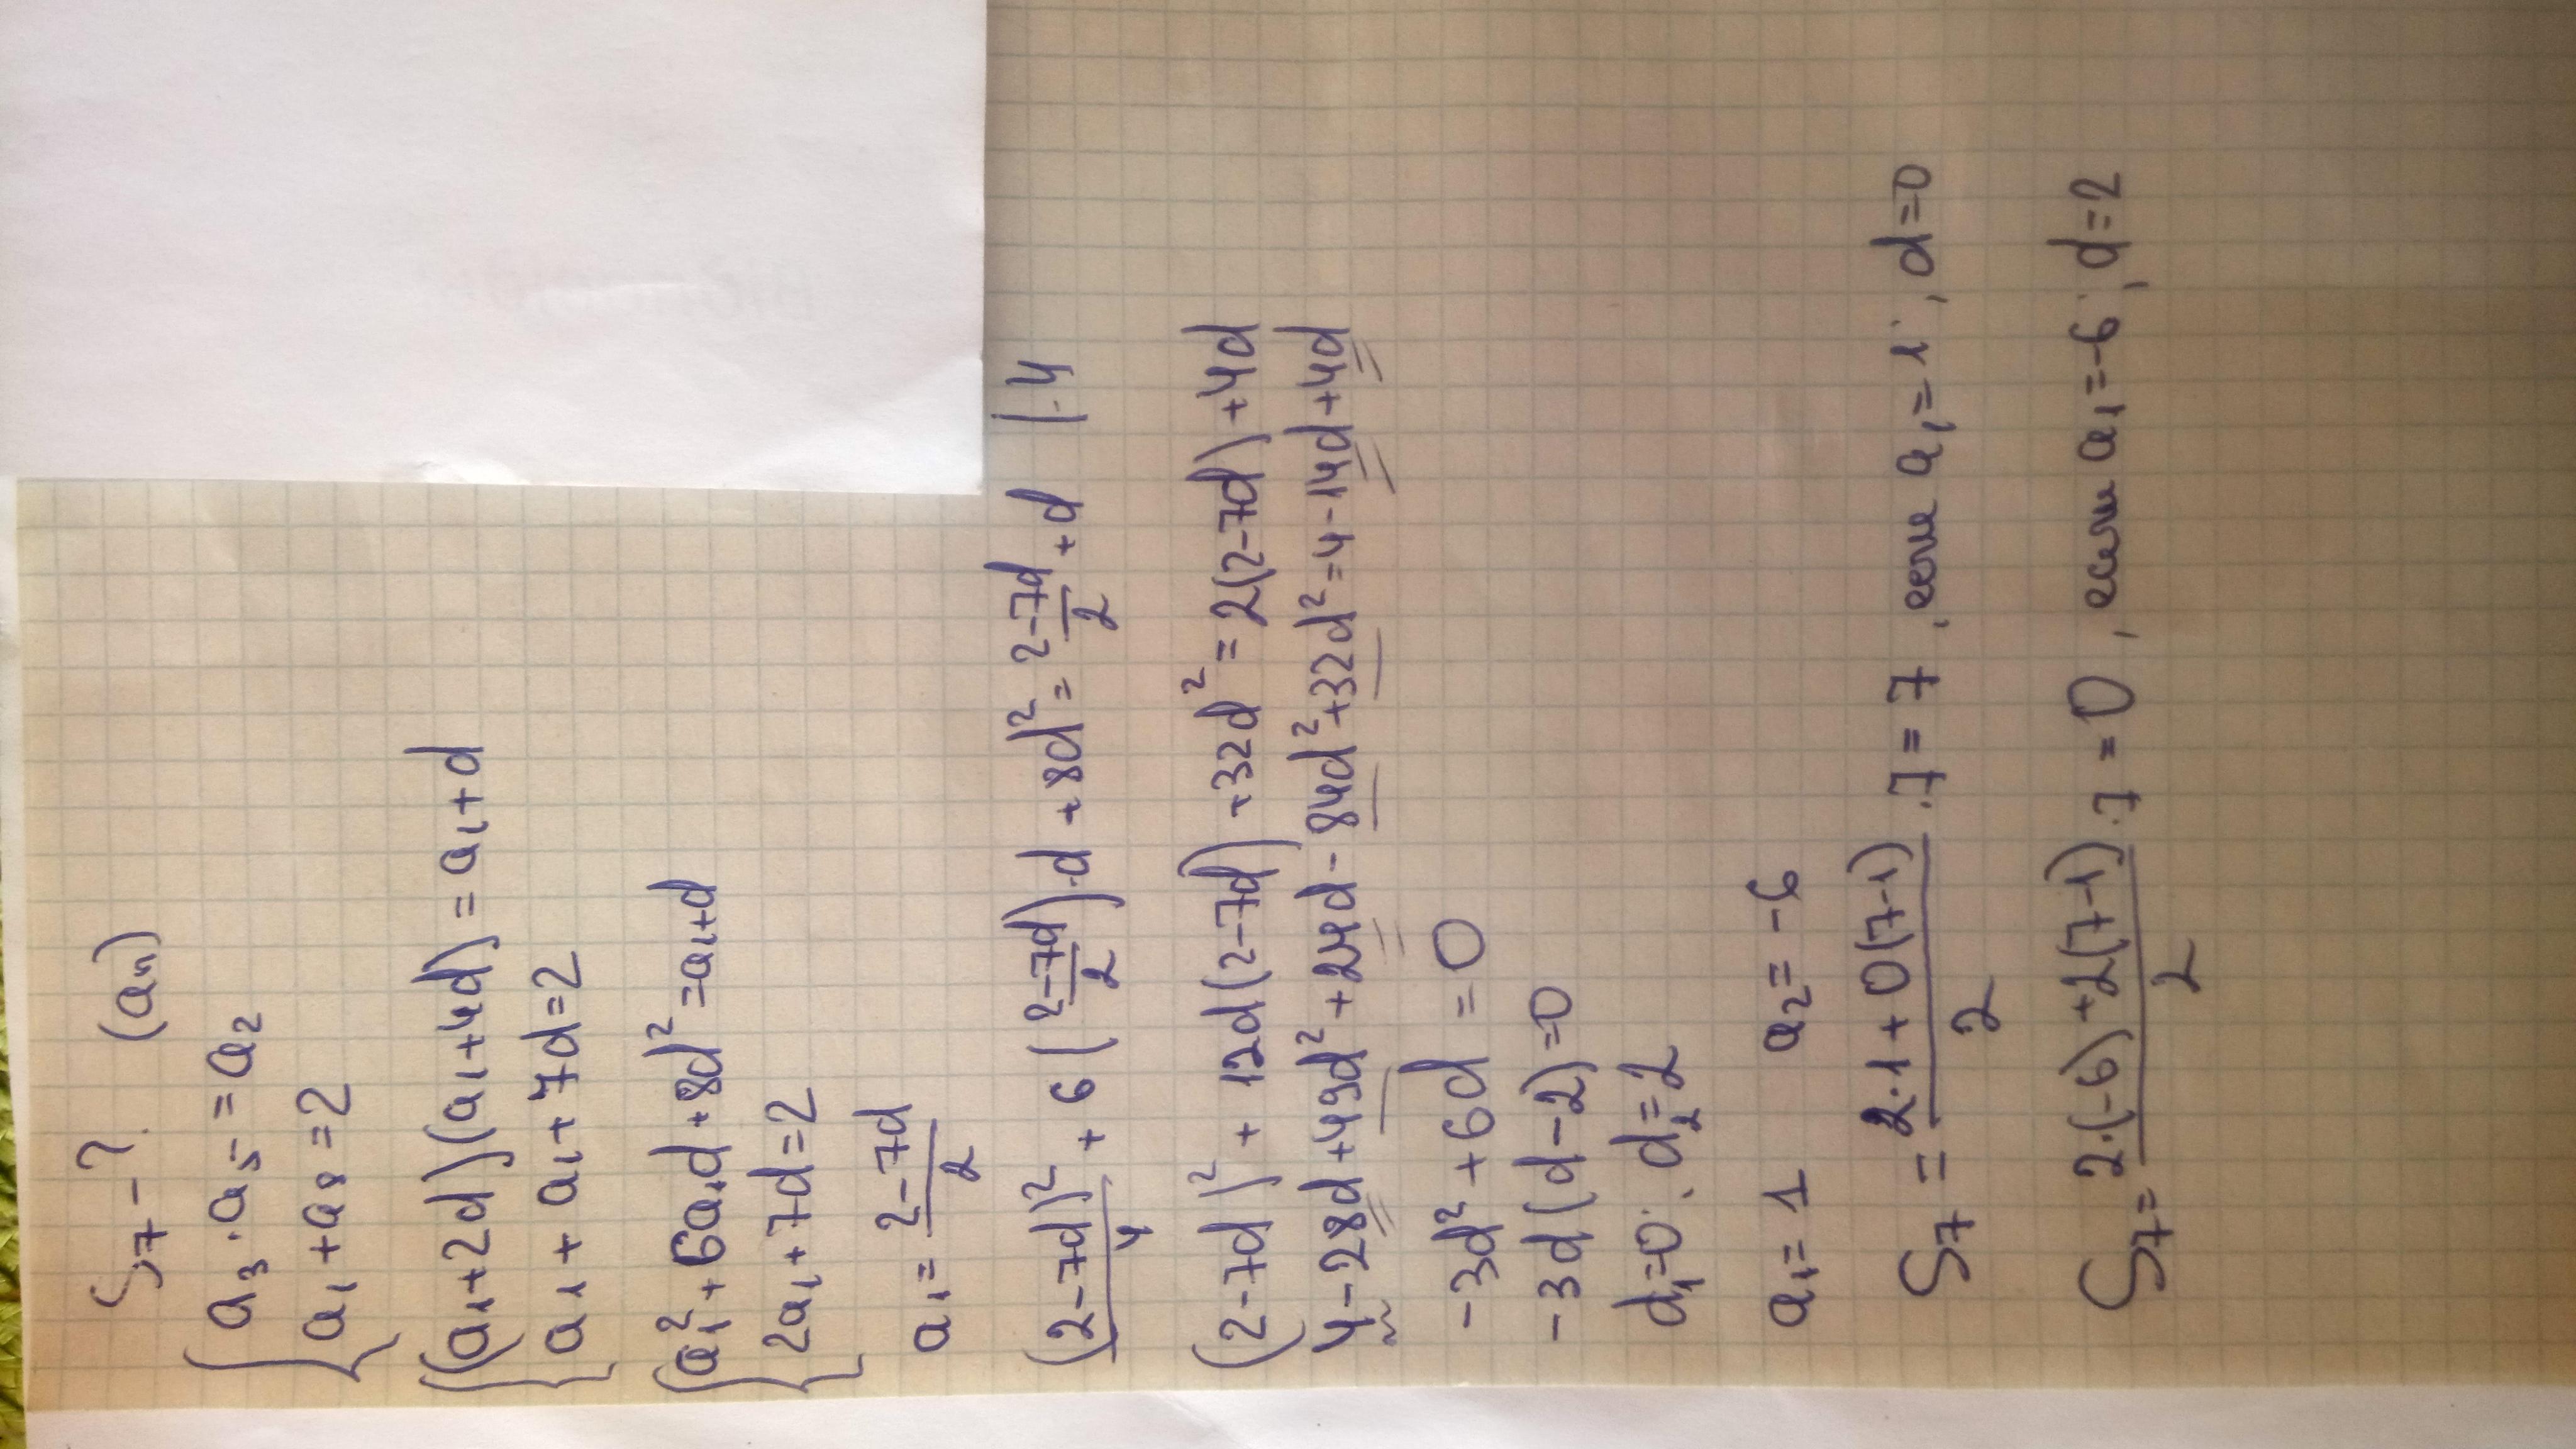 S₇ - ? (aₙ)
{ a₃ · a₅ = a₂
a₁ + a₈ = 2
{ (a₁+2d)(a₁+4d) = a₁+d
a₁ + a₁ + 7d = 2
{ a₁² + 6a₁d + 8d² = a₁+d
2a₁ + 7d = 2
a₁ = (2-7d)/2
(2-7d)²/4 + 6((2-7d)/2)·d + 8d² = (2-7d)/2 + d |·4
(2-7d)² + 12d(2-7d) + 32d² = 2(2-7d) + 4d
4 - 28d + 49d² + 24d - 84d² + 32d² = 4 - 14d + 4d
-3d² + 6d = 0
-3d(d-2) = 0
d₁=0; d₂=2
a₁ = 1 a₂ = -6
S₇ = (2·1 + 0(7-1))/2 · 7 = 7, если a₁ = 1; d=0
S₇ = (2·(-6) + 2(7-1))/2 · 7 = 0, если a₁ = -6; d=2